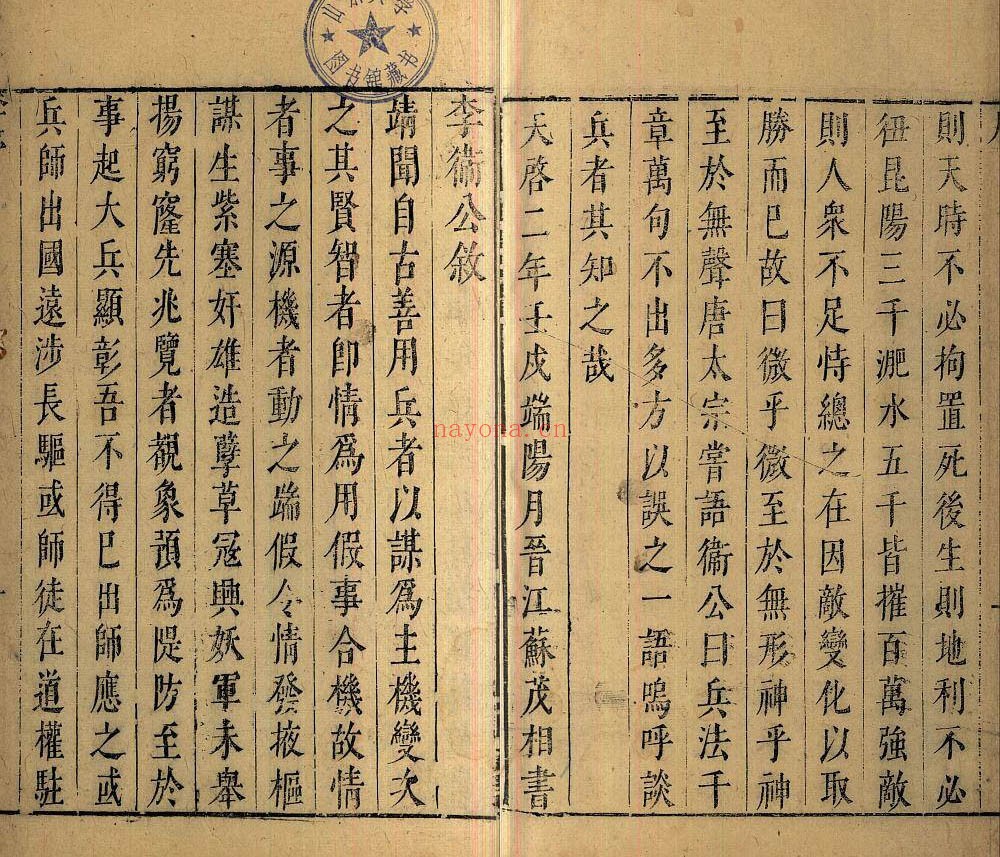 則天時不必拘置死後生則地利不必
狃昆陽三千淝水五千皆摧百萬強敵
則人衆不足恃總之在因敵變化以取
勝而巳故曰微乎微至於無形神乎神
至於無聲唐太宗嘗語衞公曰兵法千
章萬句不出多方以誤之一語嗚呼談
兵者其知之哉
天啓二年壬戌端陽月晉江蘇茂相書
李衞公敘
靖聞自古善用兵者以謀爲主機變次
之其賢智者卽情爲用假事合機故情
者事之源機者動之踹假令情發掖樞
謀生紫塞奸雄造孽草冦興妖軍未舉
揚窮窿先兆覽者觀象預爲隄防至於
事起大兵顯彰吾不得巳出師應之或
兵師出國遠涉長驅或師徒在道權駐
图书馆藏书
nayona.cn